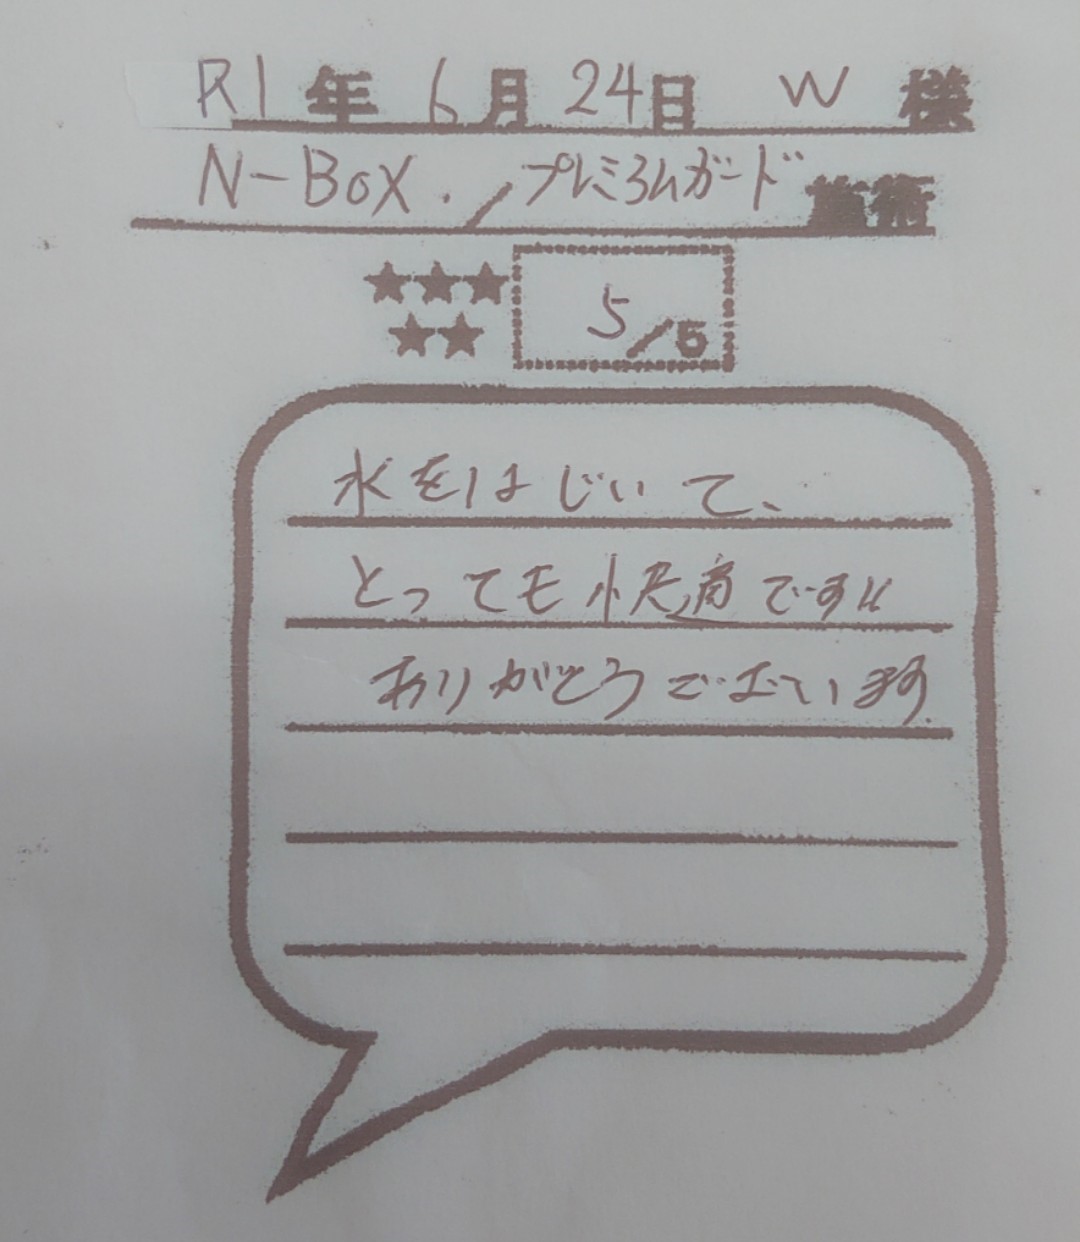 R1年 6月 24日 W 様
N-BOX. / プレミアムガード 施術
★★★ 5/5
★★
水をはじいて、
とっても快適です!!
ありがとうございます.